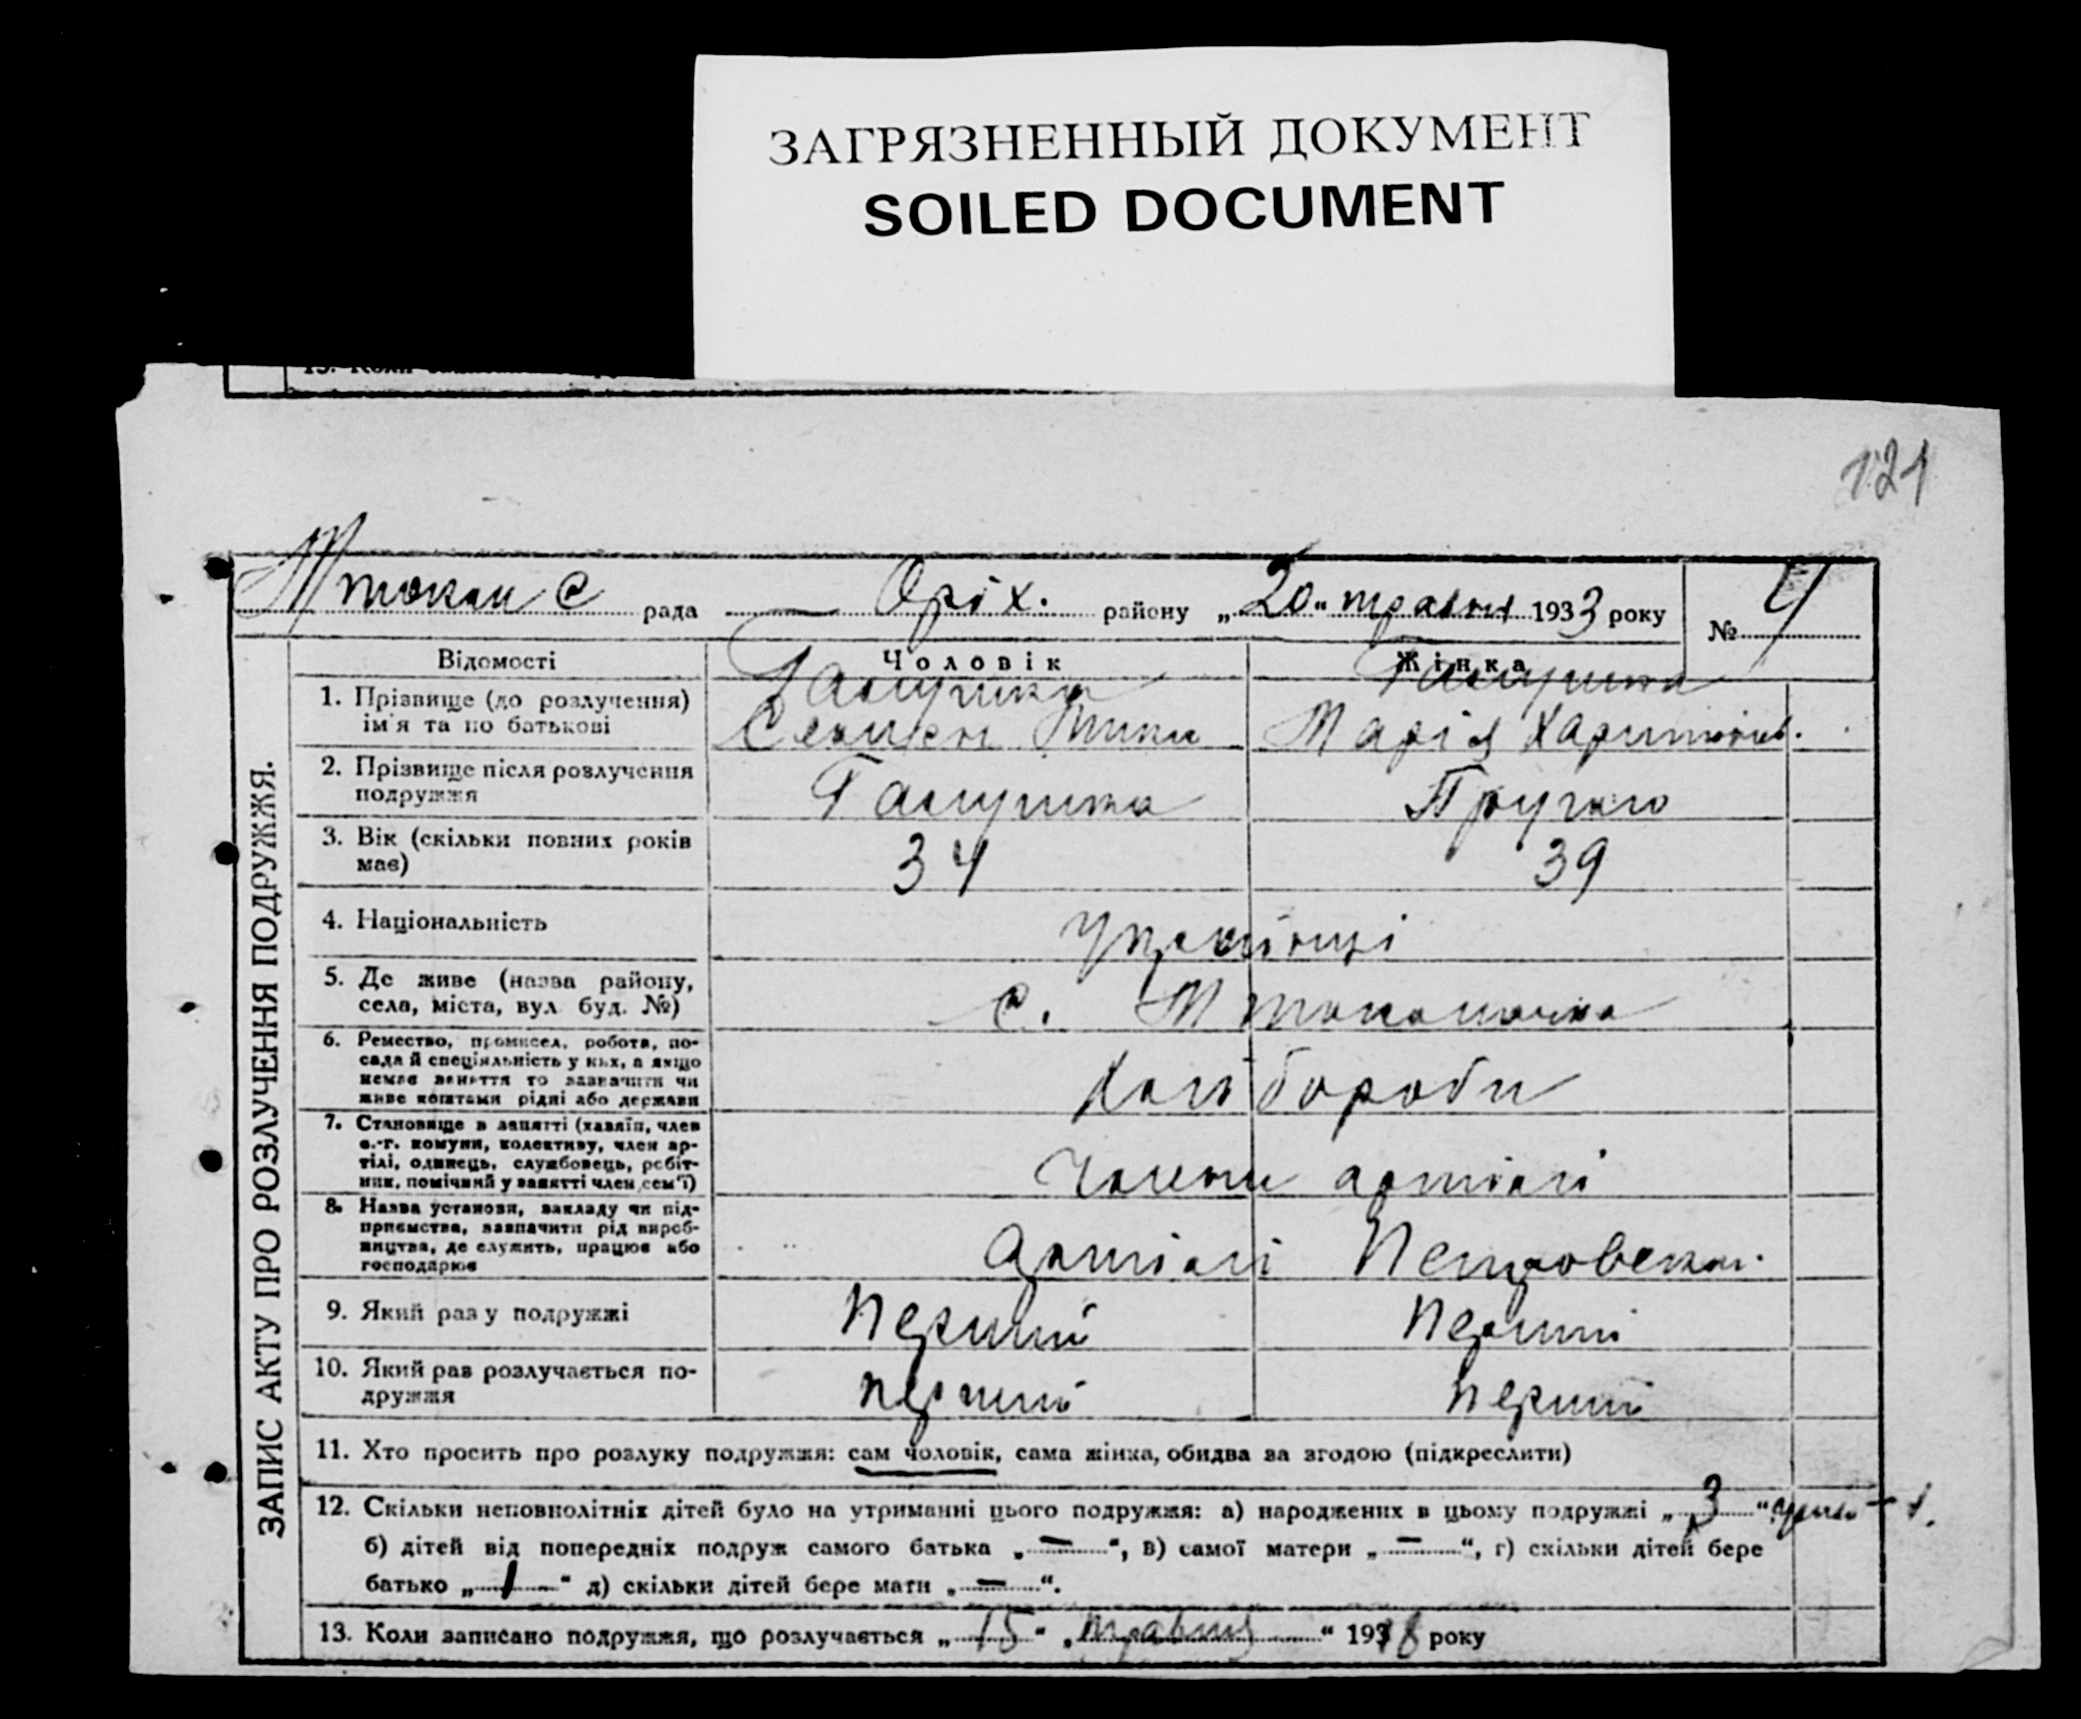 ЗАГРЯЗНЕННЫЙ ДОКУМЕНТ
SOILED DOCUMENT
121
рада Оріх. району „20“ травня 1933 року № 4
ЗАПИС АКТУ ПРО РОЗЛУЧЕННЯ ПОДРУЖЖЯ.
Відомості Чоловік Жінка
1. Прізвище (до розлучення) Галушка Галушка
ім'я та по батькові Марія Харитонів.
2. Прізвище після розлучення
подружжя Галушка
3. Вік (скільки повних років
має) 34 39
4. Національність Українці
5. Де живе (назва району,
села, міста, вул. буд. №) с.
6. Ремество, промисел, робота, по-
сада й спеціяльність у них, а якщо
немає заняття то зазначити чи
живе коштами рідні або держави Хлібороби
7. Становище в занятті (хазяїн, член
с.-г. комуни, колективу, член ар-
тілі, одинець, службовець, робіт-
ник, помічний у занятті член сем'ї) Члени артілі
8. Назва установи, закладу чи під-
приємства, зазначити рід вироб-
ництва, де служить, працює або
господарює Артілі Петровськ.
9. Який раз у подружжі Перший Перший
10. Який раз розлучається по-
дружжя перший перший
11. Хто просить про розлуку подружжя: сам чоловік, сама жінка, обидва за згодою (підкреслити)
12. Скільки неповнолітніх дітей було на утриманні цього подружжя: а) народжених в цьому подружжі „3“
б) дітей від попередніх подруж самого батька „—“, в) самої матери „—“, г) скільки дітей бере
батько „1“ д) скільки дітей бере мати „—“.
13. Коли записано подружжя, що розлучається „15“ „травня“ 1918 року